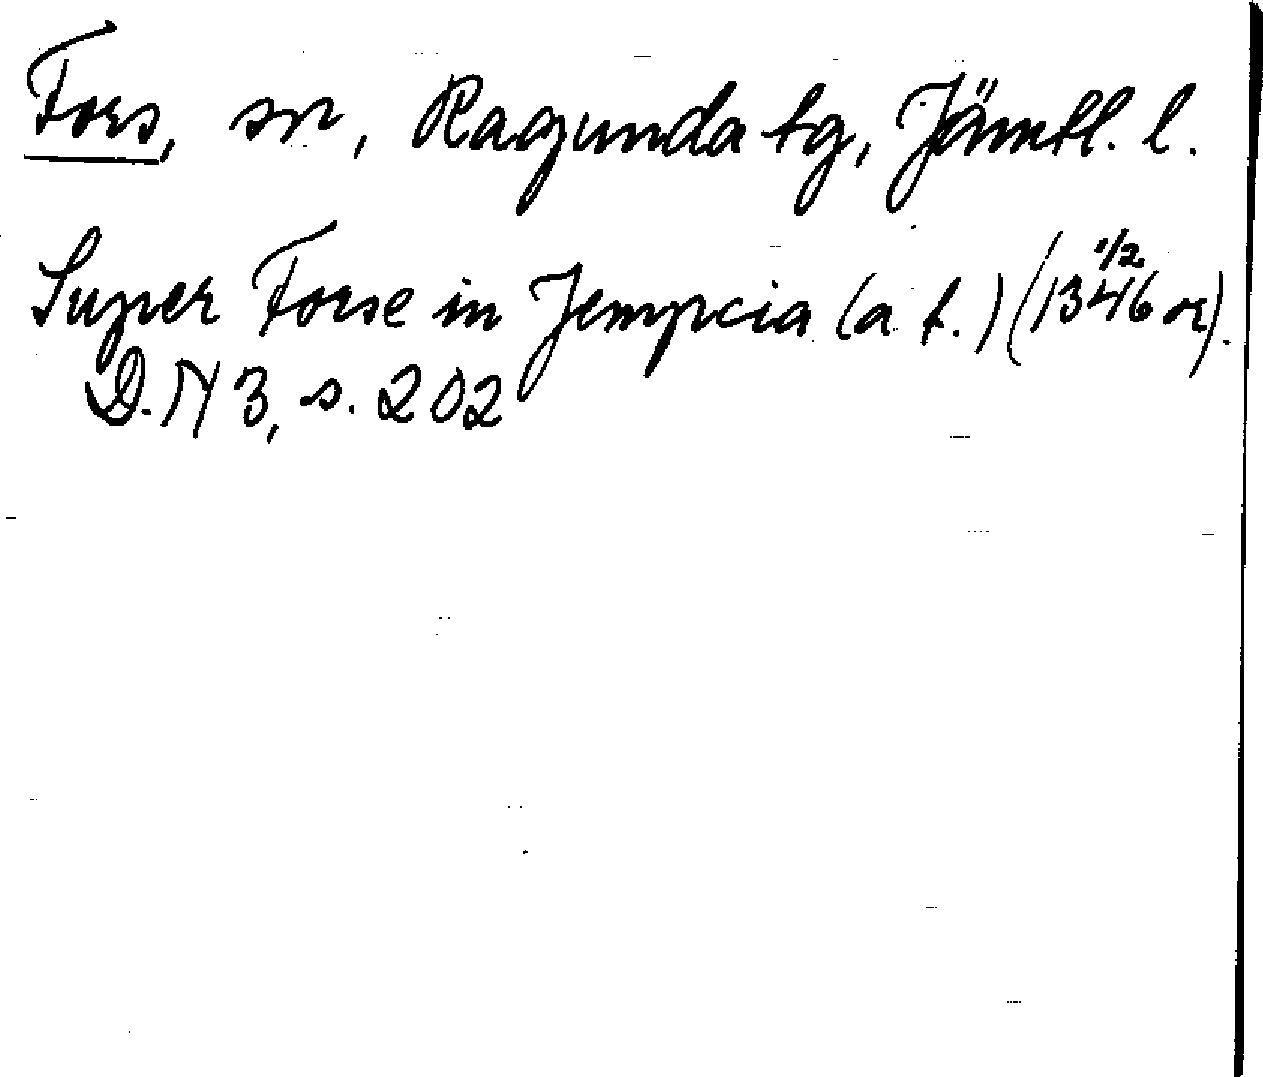 Fors, sn, Ragunda tg, Jämtl. l.
Super Forse in Jempcia (a f.) (1346 1/2 or).
D.N 3, s. 202